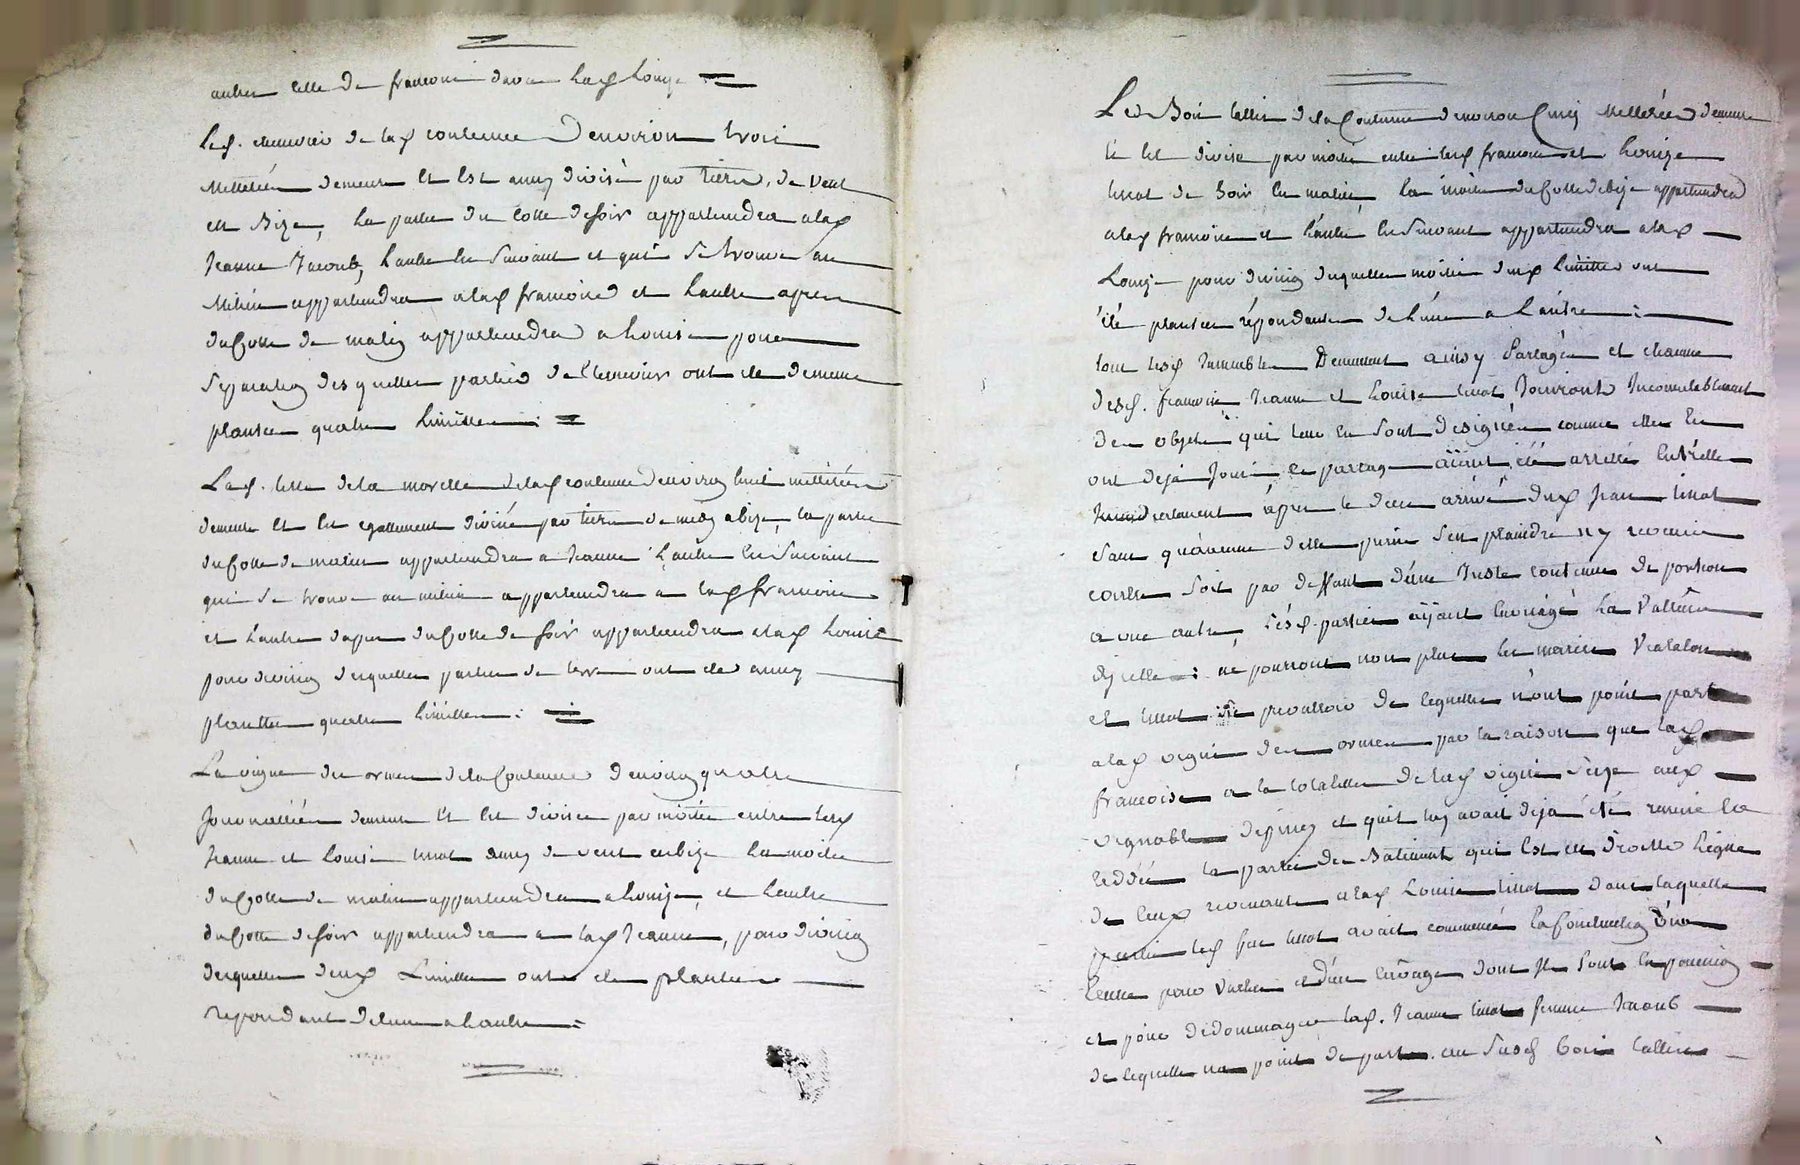 autres celle de francoise davec lad Louize
Led. chenevier de lad contenue Denviron trois
Mettérées demeure Et Est aussy divisé par tières, de vent
en Bize, la partie du cotte de soir appartiendra a lad
Jeanne Jacoub, l'autre En suivant et qui se trouve au
Milieu appartiendra a lad francoise et l'autre apres
du Cotte de matin appartiendra a Louise pour
Separation desquelles parties de Chenevier ont ete de meme
plantées quatre limittes
Lad. terre de la morelle de lad contenue Denviron huit mettérées
demeure Et Est egallement divisée par tières de midy a bize, la partie
du Cotte de matin appartiendra a Jeanne l'autre En Suivant
qui se trouve au milieu appartiendra a lad francoise
et l'autre dapres du Cotte de soir appartiendra a lad Louise
pour division desquelles parties de terre ont ete aussy
plantées quatre limittes
La vigne des ormes de la Contenue denviron quatre
Journallées demeure Et Est divisée par moitié entre lesd
Jeanne et Louise tissot aussy de vent en bize la moitié
du Cotte de matin appartiendra a Louize, et l'autre
du Cotte de soir appartiendra a lad Jeanne, pour division
desquelles deux Limittes ont ete plantées
repondant de lune a lautre
Le Bois tallis de la Contenue denviron Cinq Mettérées demeure
Et Est divisé par moitié entre lesd francoise et Louize
tissot de Soir En matin, la moitié du Cotte de bize appartiendra
a lad francoise et l'autre En Suivant appartiendra a lad
Louize pour division desquelles moitié deux limittes ont
été plantées répondantes de l'une a L'autre
tout lesd Immeubles Demeurent ainsy Partagés et chacune
desd. francoise Jeanne et Louise tissot Jouiront Incommutablement
des objets qui leur En sont désignés comme elles En
ont deja Joui le partage aiant été arresté Entr'elles
Immediatement après le deces arrivé dud Jean tissot
sans qu'aucune d'elle puisse s'en plaindre ny recourir
contre soit par deffaut d'une Juste contenue de portion
a une autre, lésd. parties aÿant Envisagé la Valleur
dycelle; ne pourront non plus les mariés
et tissot se prevalloir de lequelle n'ont point part
a lad vigne des ormes par la raison que lad
francoise a la totalité de lad vigne Size aux
vignobles et quil luy avait deja été remis En
la partie de Batiment qui Est En droitte ligne
de Ceux revenant a lad Louise tissot dans laquelle
partie led feu tissot avait commencé la Construction d'une
Ecurie pour Vaches et d'un Envoage dont Ils sont En possession
et pour dédommager lad. Jeanne tissot femme Jacoub
de lequelle na point de part au Susd bois tallis